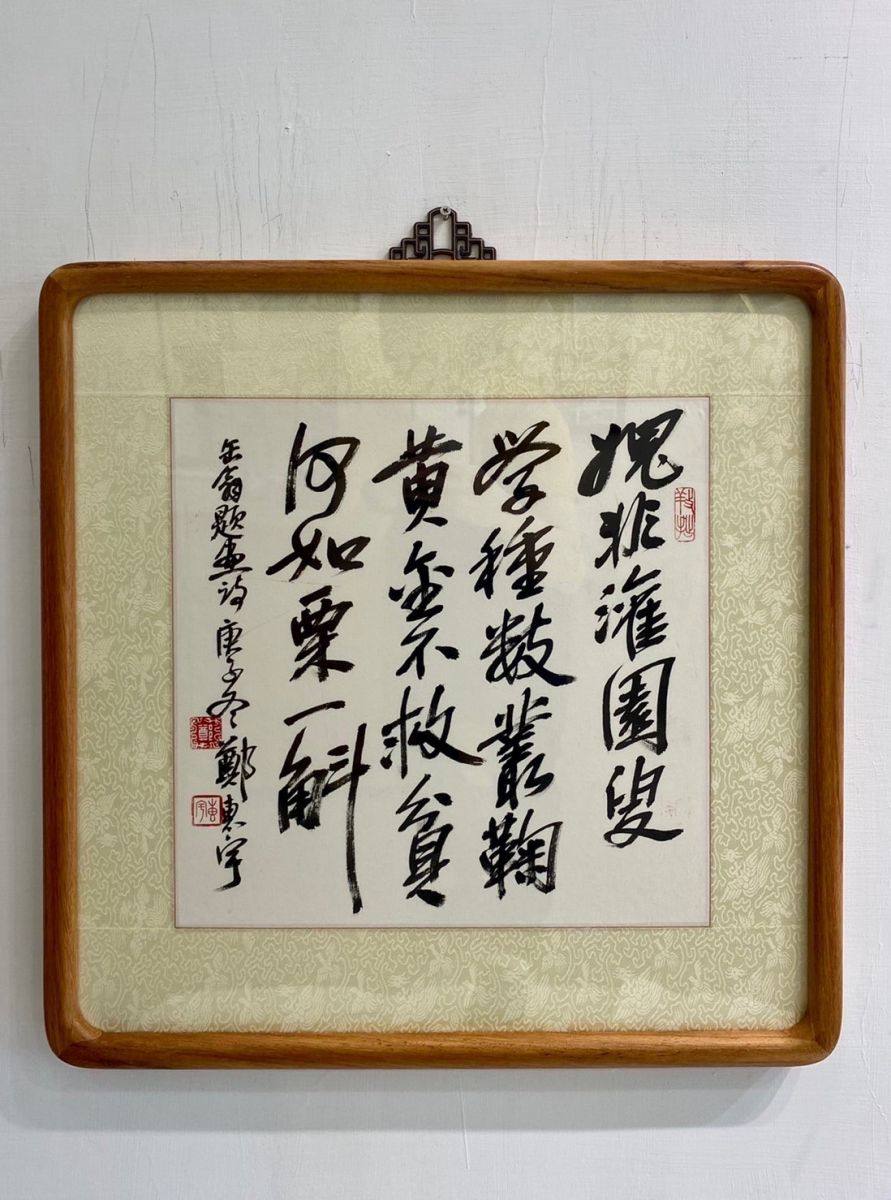 愧非灌園叟
学種数叢鞠
黄金不救貧
何如粟一斛
缶翁題画诗 庚子冬 鄭東宇